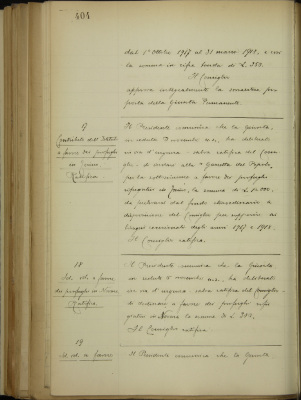 404
dal 1° Ottobre 1917 al 31 marzo 1918, e così
la somma in cifra tonda di L. 350.
Il Consiglio
approva integralmente la
proposta della Giunta Permanente.
17
a favore dei profughi
in Torino
Ratifica
Il Presidente comunica che la Giunta,
in seduta 5 novembre u.s., ha deliberato
in via d'urgenza - salva ratifica del Consi-
glio - di inviare alla "Gazzetta del Popolo",
per la sottoscrizione a favore dei profughi
rifugiatisi in Torino, la somma di L.
da prelevarsi dal fondo straordinario a
disposizione del Consiglio per
bisogni eccezionali degli anni 1917 e 1918.
Il Consiglio ratifica.
18
Id. id. a favore
dei profughi in
Ratifica
Il Presidente comunica che la Giunta,
in seduta novembre u.s., ha deliberato
in via d'urgenza - salva ratifica del Consiglio -
di a favore dei profughi rifu-
giatisi in la somma di L. 300.
Il Consiglio ratifica.
19
Id. id. a favore
Il Presidente comunica che la Giunta